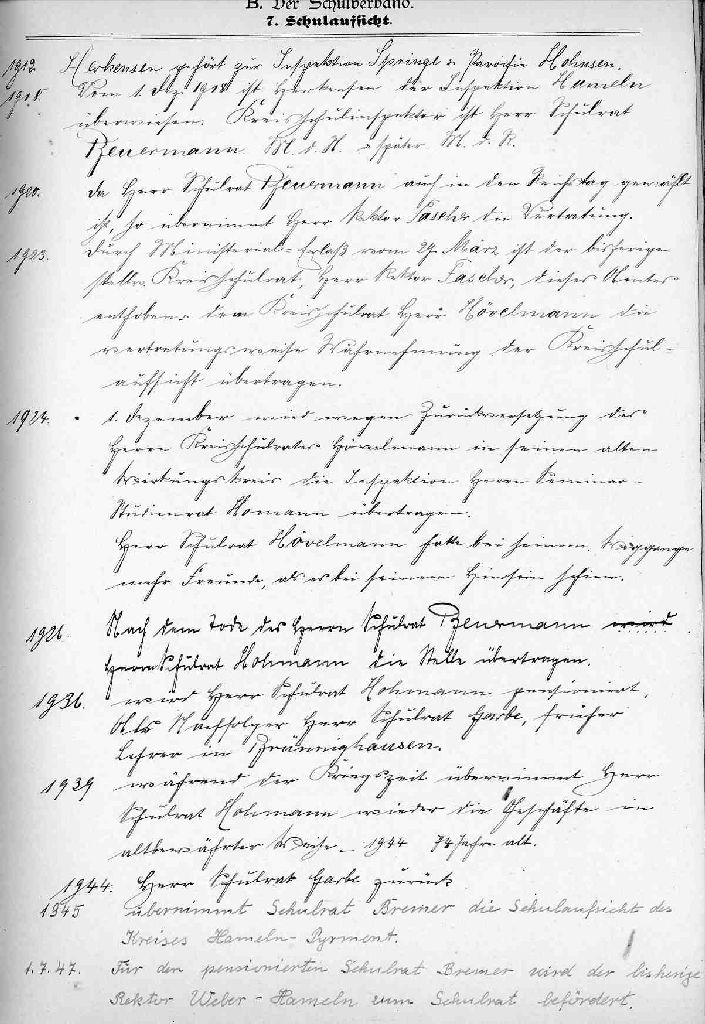 B. Der Schulverband.
7. Schulaufsicht.
1912. Herkensen gehört zur Inspektion Springe u. Parochie Hohnsen.
1918. Vom 1. Dez. 1918 ist Herkensen der Inspektion Hameln
überwiesen. Kreisschulinspektor ist Herr Schulrat
Beuermann M. d. N. später M. d. R.
1920. da Herr Schulrat Beuermann auch in den Reichstag gewählt
ist, so übernimmt Herr Rektor die Vertretung.
1923. Durch Ministerial-Erlaß vom 29. März ist der bisherige
stellv. Kreisschulrat, Herr Rektor dieses Amtes
enthoben u. dem Kreisschulrat Herr Hövelmann die
vertretungsweise Wahrnehmung der Kreisschul-
aufsicht übertragen.
1924. 1. Dezember wird wegen Zurückversetzung des
Herrn Kreisschulrates Hövelmann in seinen alten
Wirkungskreis die Inspektion Herrn Seminar-
Studienrat Homann übertragen.
Herr Schulrat Hövelmann hatte bei seinem Weggange
mehr Freunde, als es bei seinem Hiersein schien.
1926. Nach dem Tode des Herrn Schulrat Beuermann wird
Herrn Schulrat Hohmann die Stelle übertragen.
1936. wird Herr Schulrat Hohmann pensioniert.
Als Nachfolger Herr Schulrat Garbe, früher
Lehrer in Brünnighausen.
1939 während der Kriegszeit übernimmt Herr
Schulrat Hohmann wieder die Geschäfte in
altbewährter Weise. 1944 74 Jahre alt.
1944. Herr Schulrat Garbe zurück
1945 übernimmt Schulrat Bremer die Schulaufsicht des
Kreises Hameln-Pyrmont.
1.7.47. Für den pensionierten Schulrat Bremer wird der bisherige
Rektor Weber-Hameln zum Schulrat befördert.